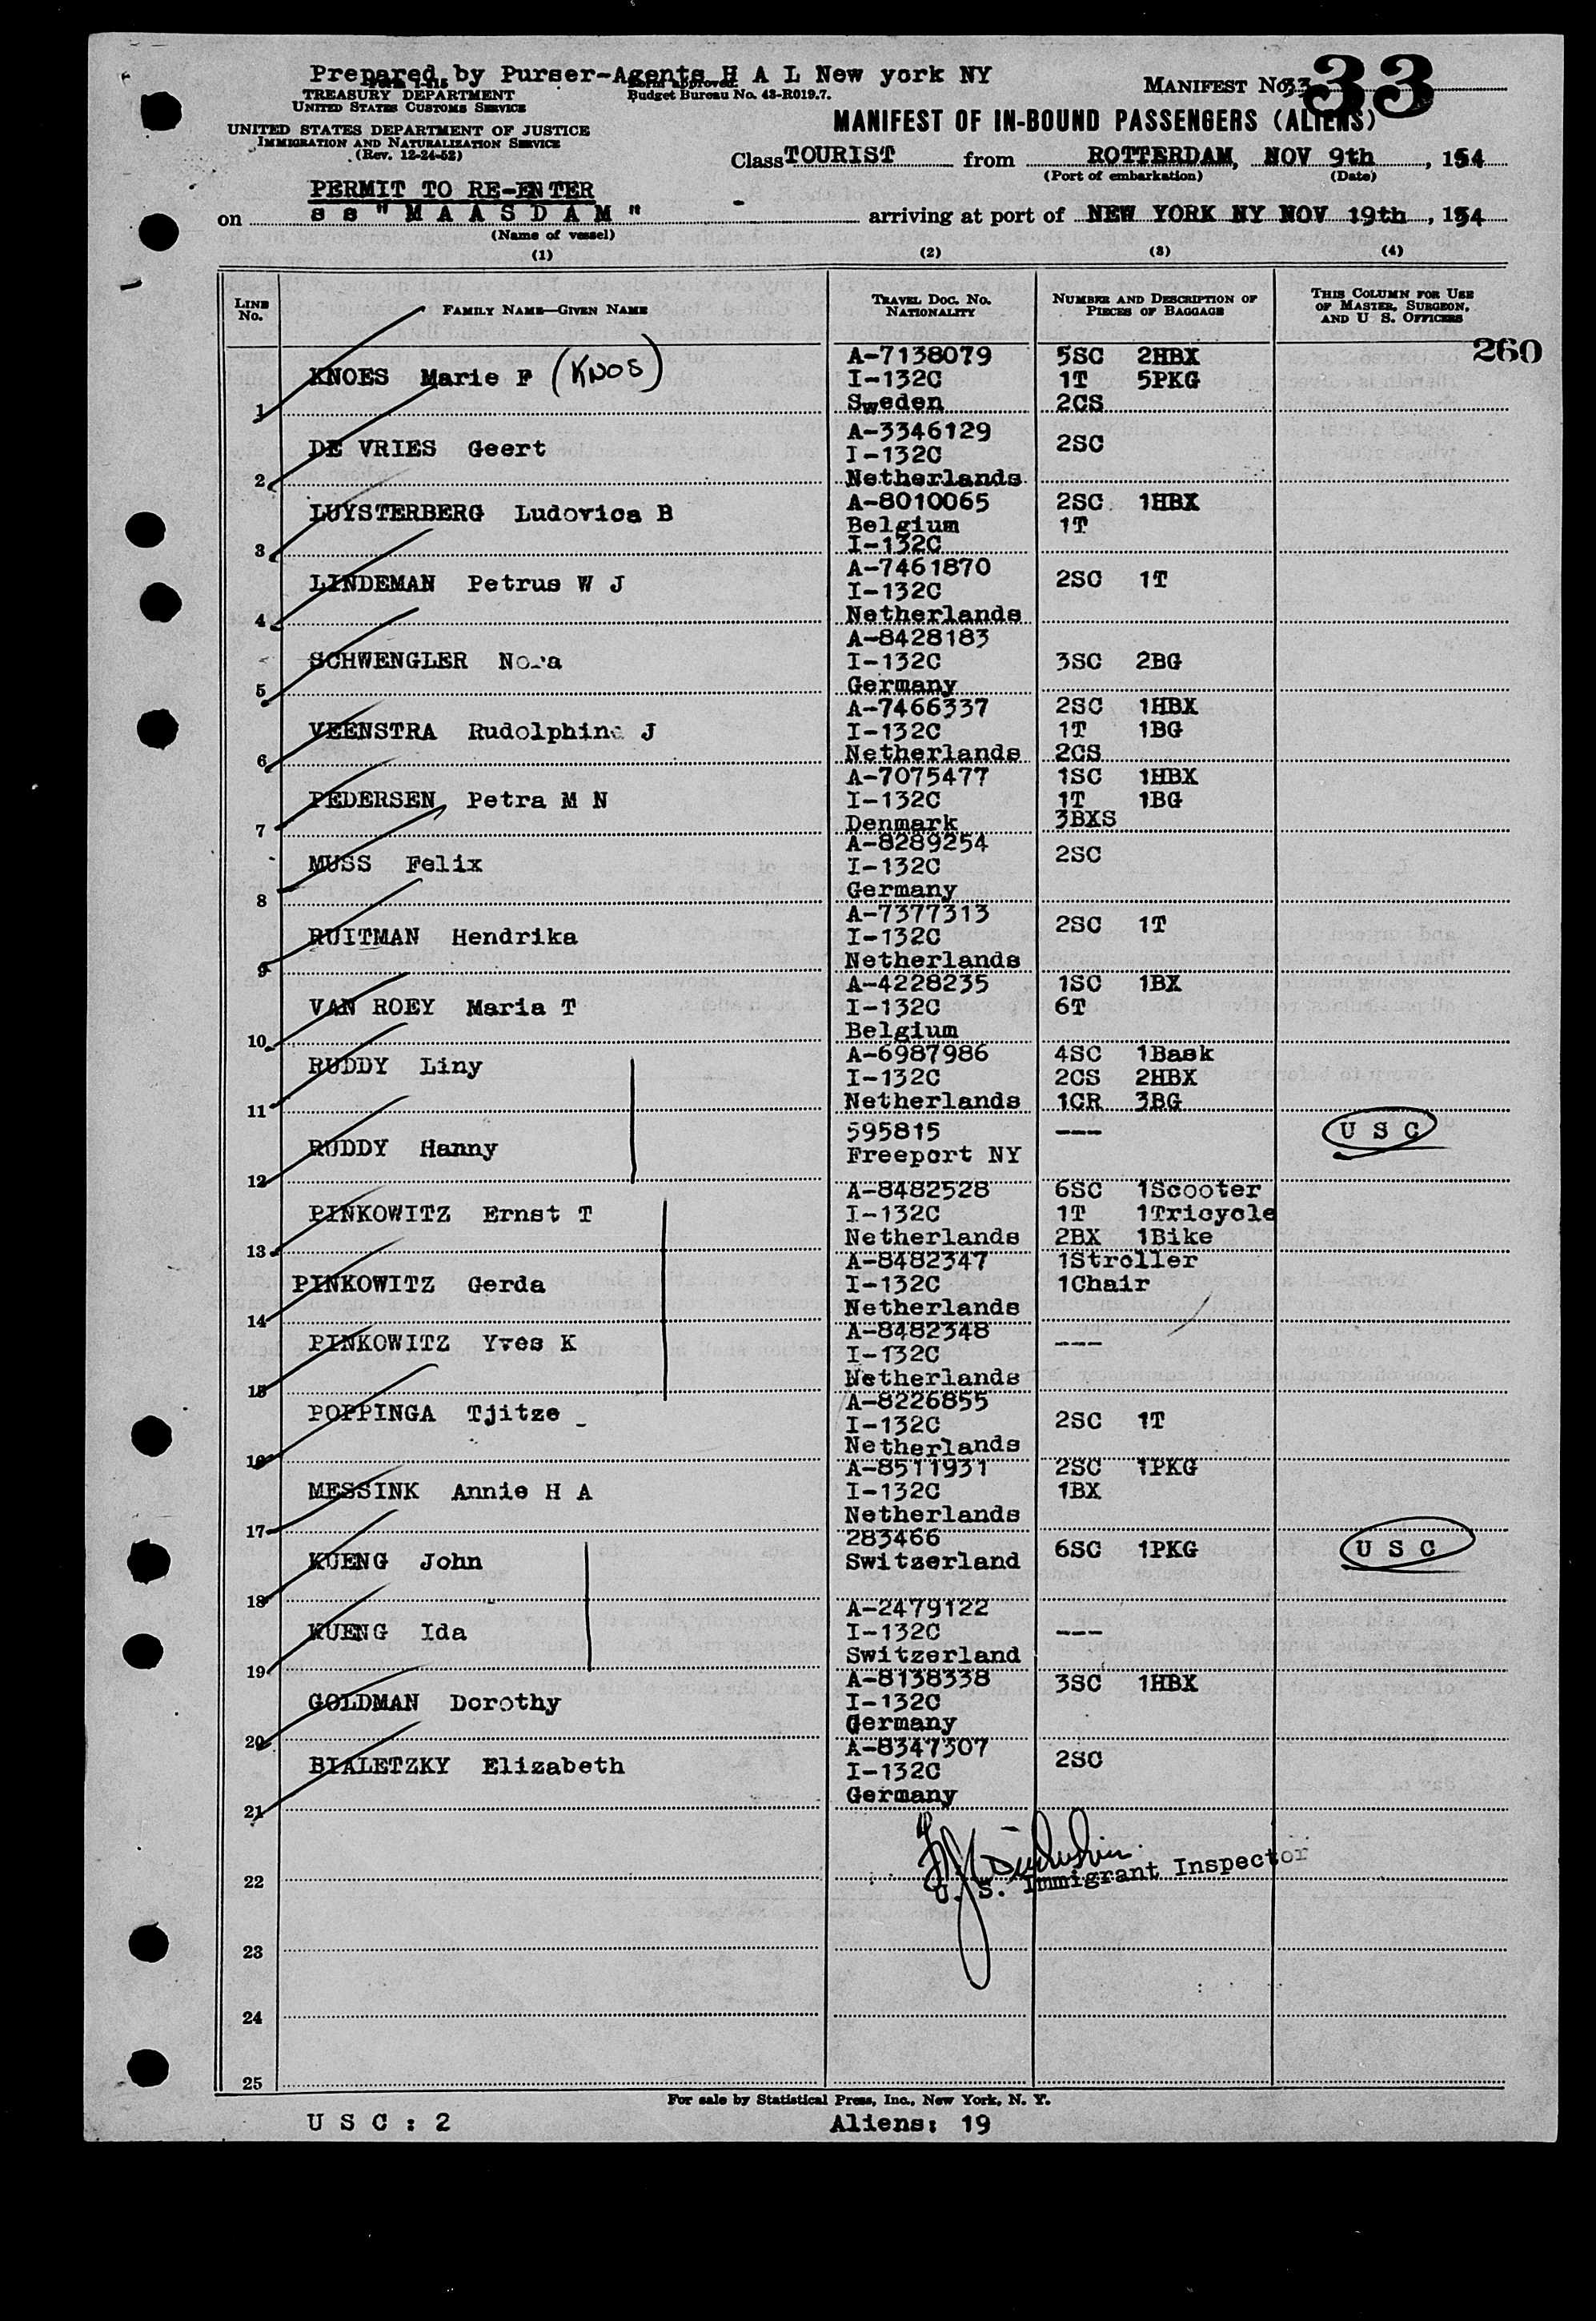 Prepared by Purser-Agents H A L New york NY
Form approved.
Budget Bureau No. 43-R019.7.
MANIFEST No. 33
33
TREASURY DEPARTMENT
UNITED STATES CUSTOMS SERVICE
UNITED STATES DEPARTMENT OF JUSTICE
IMMIGRATION AND NATURALIZATION SERVICE
(Rev. 12-24-52)
MANIFEST OF IN-BOUND PASSENGERS (ALIENS)
Class TOURIST from ROTTERDAM, NOV 9th, 1954
(Port of embarkation) (Date)
PERMIT TO RE-ENTER
on s s "M A A S D A M" - arriving at port of NEW YORK NY NOV 19th, 1954
(Name of vessel)
(1) (2) (3) (4)
LINE No. FAMILY NAME—GIVEN NAME TRAVEL DOC. NO. NATIONALITY NUMBER AND DESCRIPTION OF PIECES OF BAGGAGE THIS COLUMN FOR USE OF MASTER, SURGEON, AND U. S. OFFICERS
260
1 KNOES Marie F (KNOS) A-7138079 I-132C Sweden 5SC 2HBX 1T 5PKG 2CS
2 DE VRIES Geert A-3346129 I-132C Netherlands 2SC
3 LUYSTERBERG Ludovica B A-8010065 Belgium I-132C 2SC 1HBX 1T
4 LINDEMAN Petrus W J A-7461870 I-132C Netherlands 2SC 1T
5 SCHWENGLER Nora A-8428183 I-132C Germany 3SC 2BG
6 VEENSTRA Rudolphina J A-7466337 I-132C Netherlands 2SC 1HBX 1T 1BG 2CS
7 PEDERSEN Petra M N A-7075477 I-132C Denmark 1SC 1HBX 1T 1BG 3BXS
8 MUSS Felix A-8289254 I-132C Germany 2SC
9 RUITMAN Hendrika A-7377313 I-132C Netherlands 2SC 1T
10 VAN ROEY Maria T A-4228235 I-132C Belgium 1SC 1BX 6T
11 RUDDY Liny A-6987986 I-132C Netherlands 4SC 1Bask 2CS 2HBX 1CR 3BG
12 RUDDY Hanny 595815 Freeport NY --- U S C
13 PINKOWITZ Ernst T A-8482528 I-132C Netherlands 6SC 1Scooter 1T 1Tricycle 2BX 1Bike
14 PINKOWITZ Gerda A-8482347 I-132C Netherlands 1Stroller 1Chair
15 PINKOWITZ Yves K A-8482348 I-132C Netherlands ---
16 POPPINGA Tjitze A-8226855 I-132C Netherlands 2SC 1T
17 MESSINK Annie H A A-8511931 I-132C Netherlands 2SC 1PKG 1BX
18 KUENG John 283466 Switzerland 6SC 1PKG U S C
19 KUENG Ida A-2479122 I-132C Switzerland ---
20 GOLDMAN Dorothy A-8138338 I-132C Germany 3SC 1HBX
21 BIALETZKY Elizabeth A-8347307 I-132C Germany 2SC
22
U. S. Immigrant Inspector
23
24
25
For sale by Statistical Press, Inc., New York, N. Y.
U S C : 2 Aliens: 19